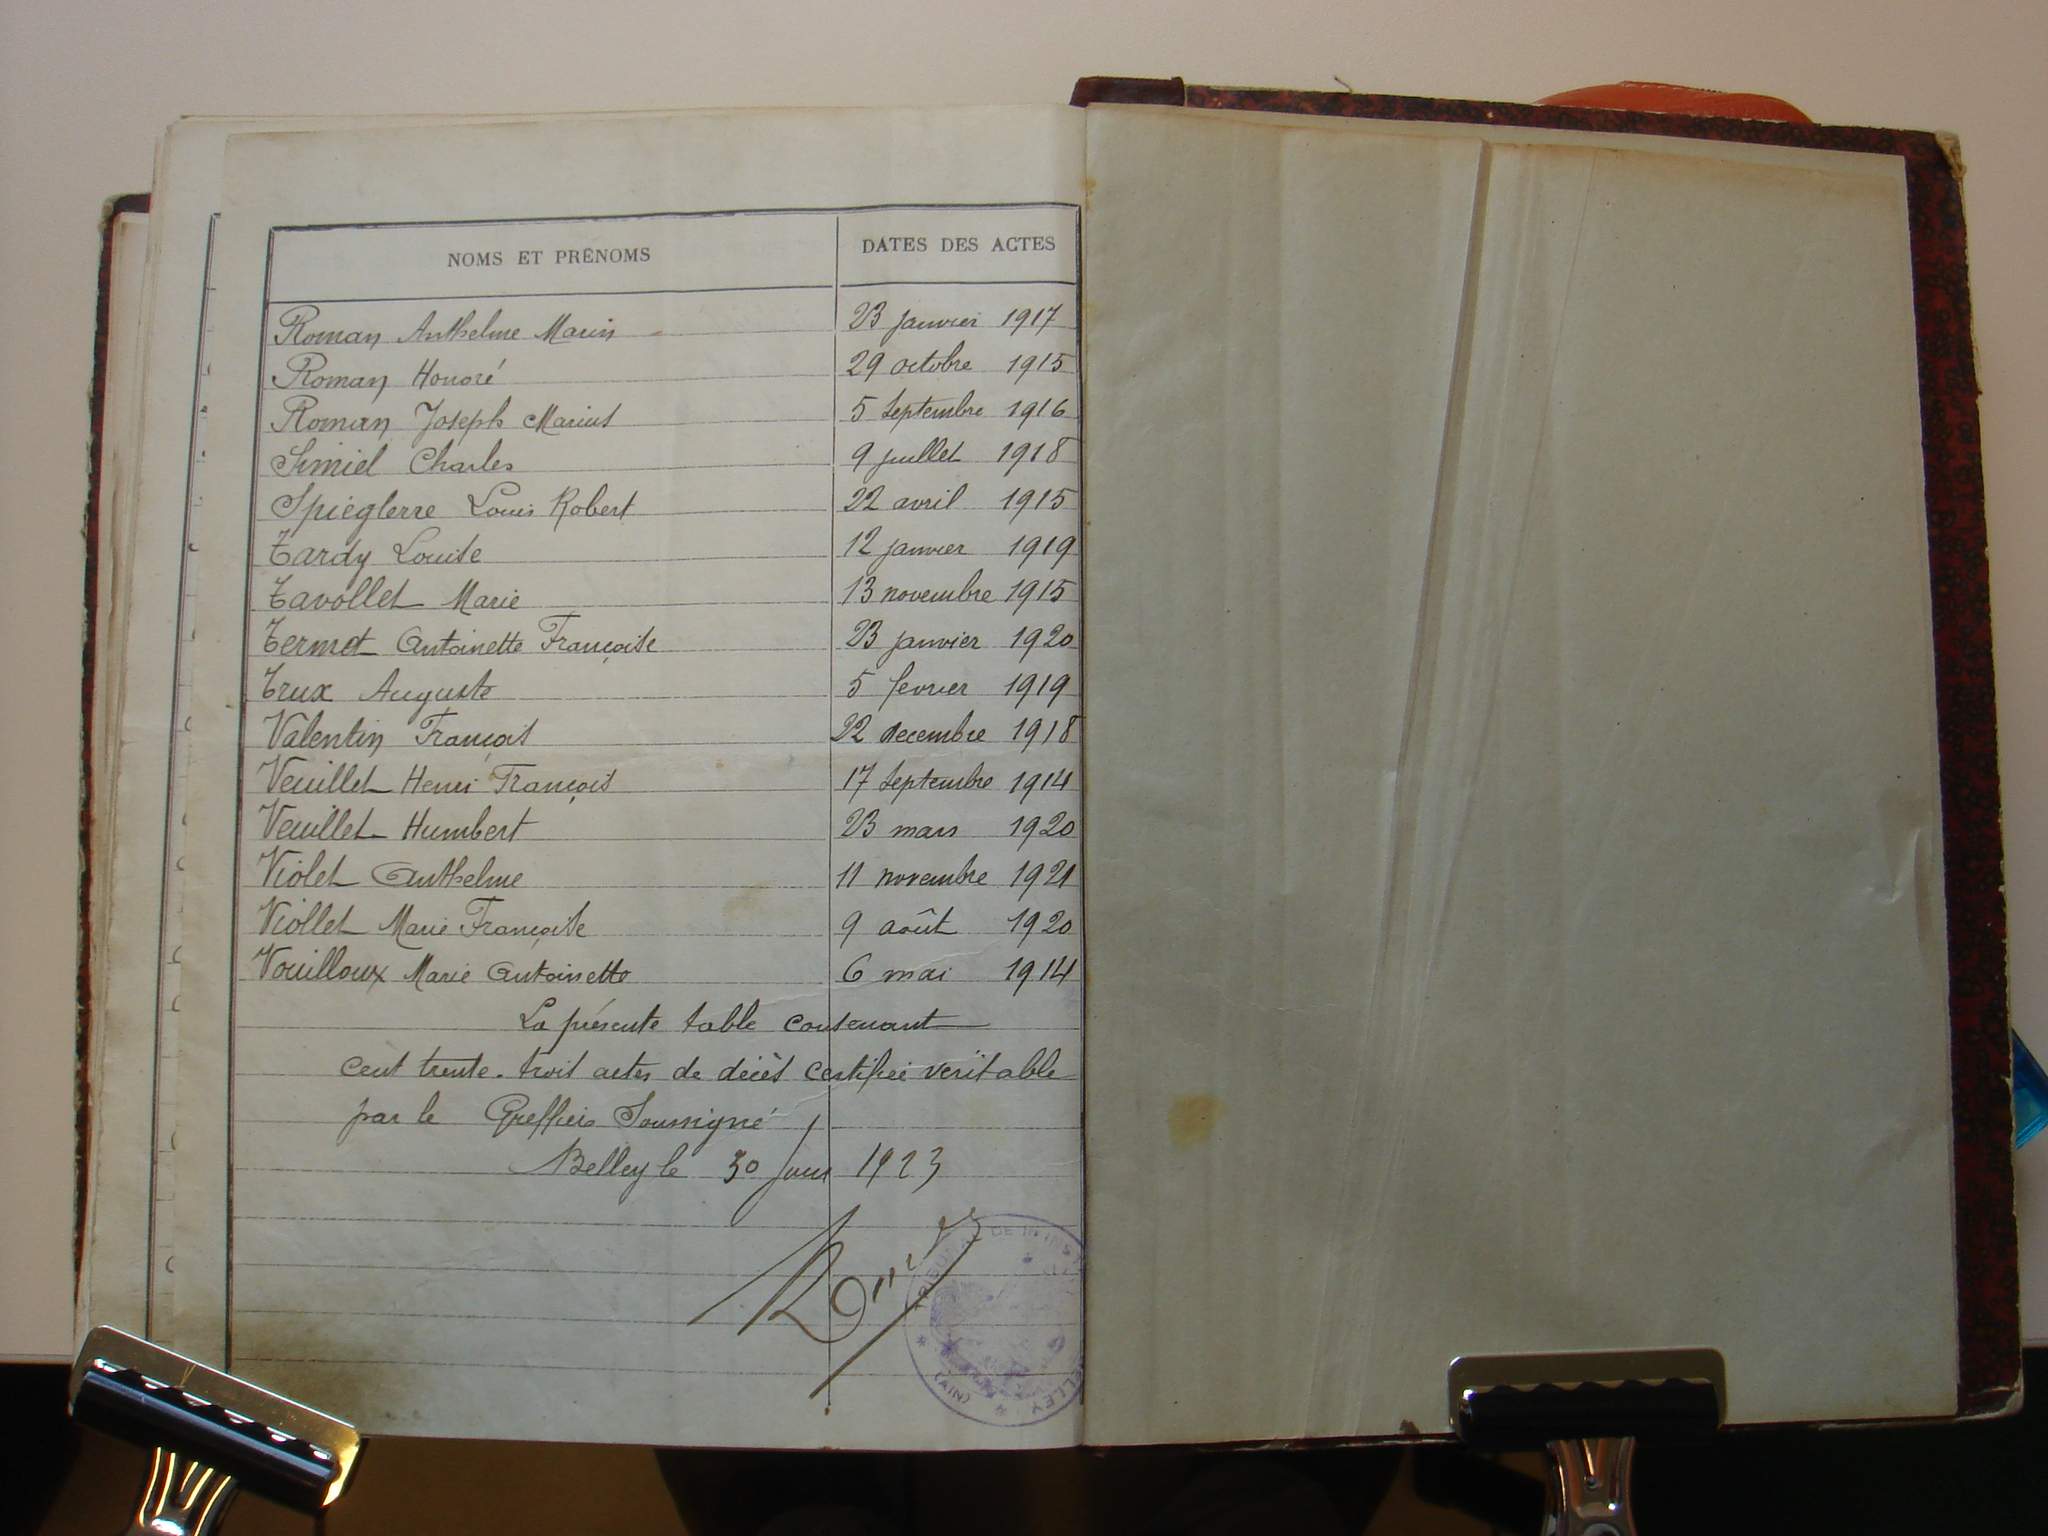 NOMS ET PRÉNOMS DATES DES ACTES
Roman Anthelme Marin 23 janvier 1917
Roman Honoré 29 octobre 1915
Roman Joseph Marius 5 septembre 1916
Simiel Charles 9 juillet 1918
Spiéglerre Louis Robert 22 avril 1915
Tardy Louise 12 janvier 1919
Tavollet Marie 13 novembre 1915
Termet Antoinette Françoise 23 janvier 1920
Trux Auguste 5 fevrier 1919
Valentin François 22 decembre 1918
Veuillet Henri François 17 septembre 1914
Veuillet Humbert 23 mars 1920
Violet Anthelme 11 novembre 1921
Viollet Marie Françoise 9 août 1920
Vouilloux Marie Antoinette 6 mai 1914
La présente table contenant
cent trente-trois actes de décès certifiée véritable
par le Greffier Soussigné
Belley le 30 Juin 1923
TRIBUNAL DE 1e INST
BELLEY
(AIN)